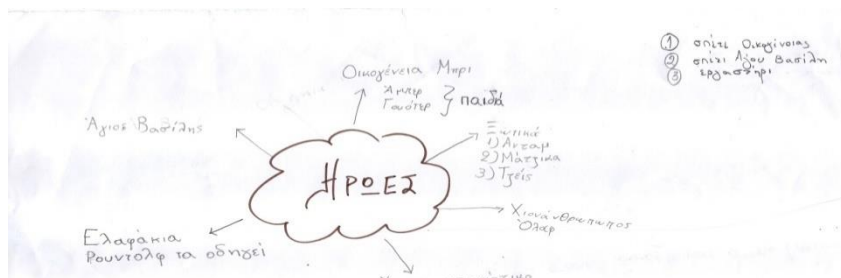 ① σπίτι Οικογένειας
② σπίτι Αγίου Βασίλη
③ εργαστήρι
Οικογένεια Μπρι
Άρπερ
παιδιά
Άγιος Βασίλης
Ξωτικά
1) Ανταμ
2) Μάτζικα
3) Τζέις
ΗΡΩΕΣ
Χιονάνθρωπος
Όλαφ
Ελαφάκια
Ρουντόλφ τα οδηγεί